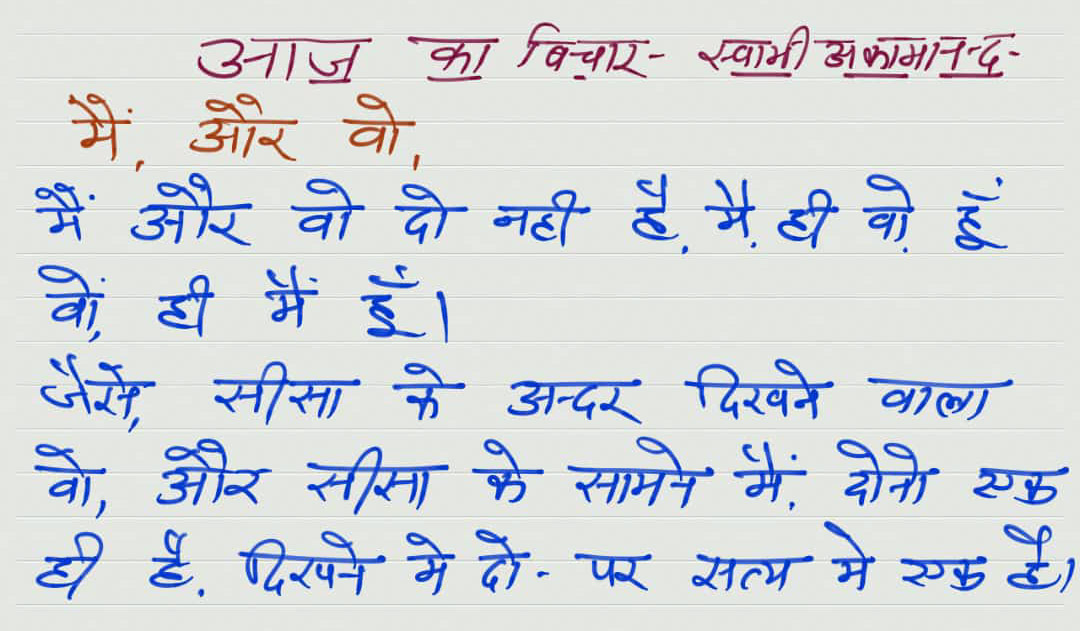 आज का विचार- स्वामी अकामानन्द-
मैं, और वो,
मैं और वो दो नही है, मै, ही वो, हूँ
वों, ही मैं हूँ।
जैसे, सीसा के अन्दर दिखने वाला
वो, और सीसा के सामने मैं, दोनो एक
ही है. दिखने मे दो- पर सत्य मे एक है।